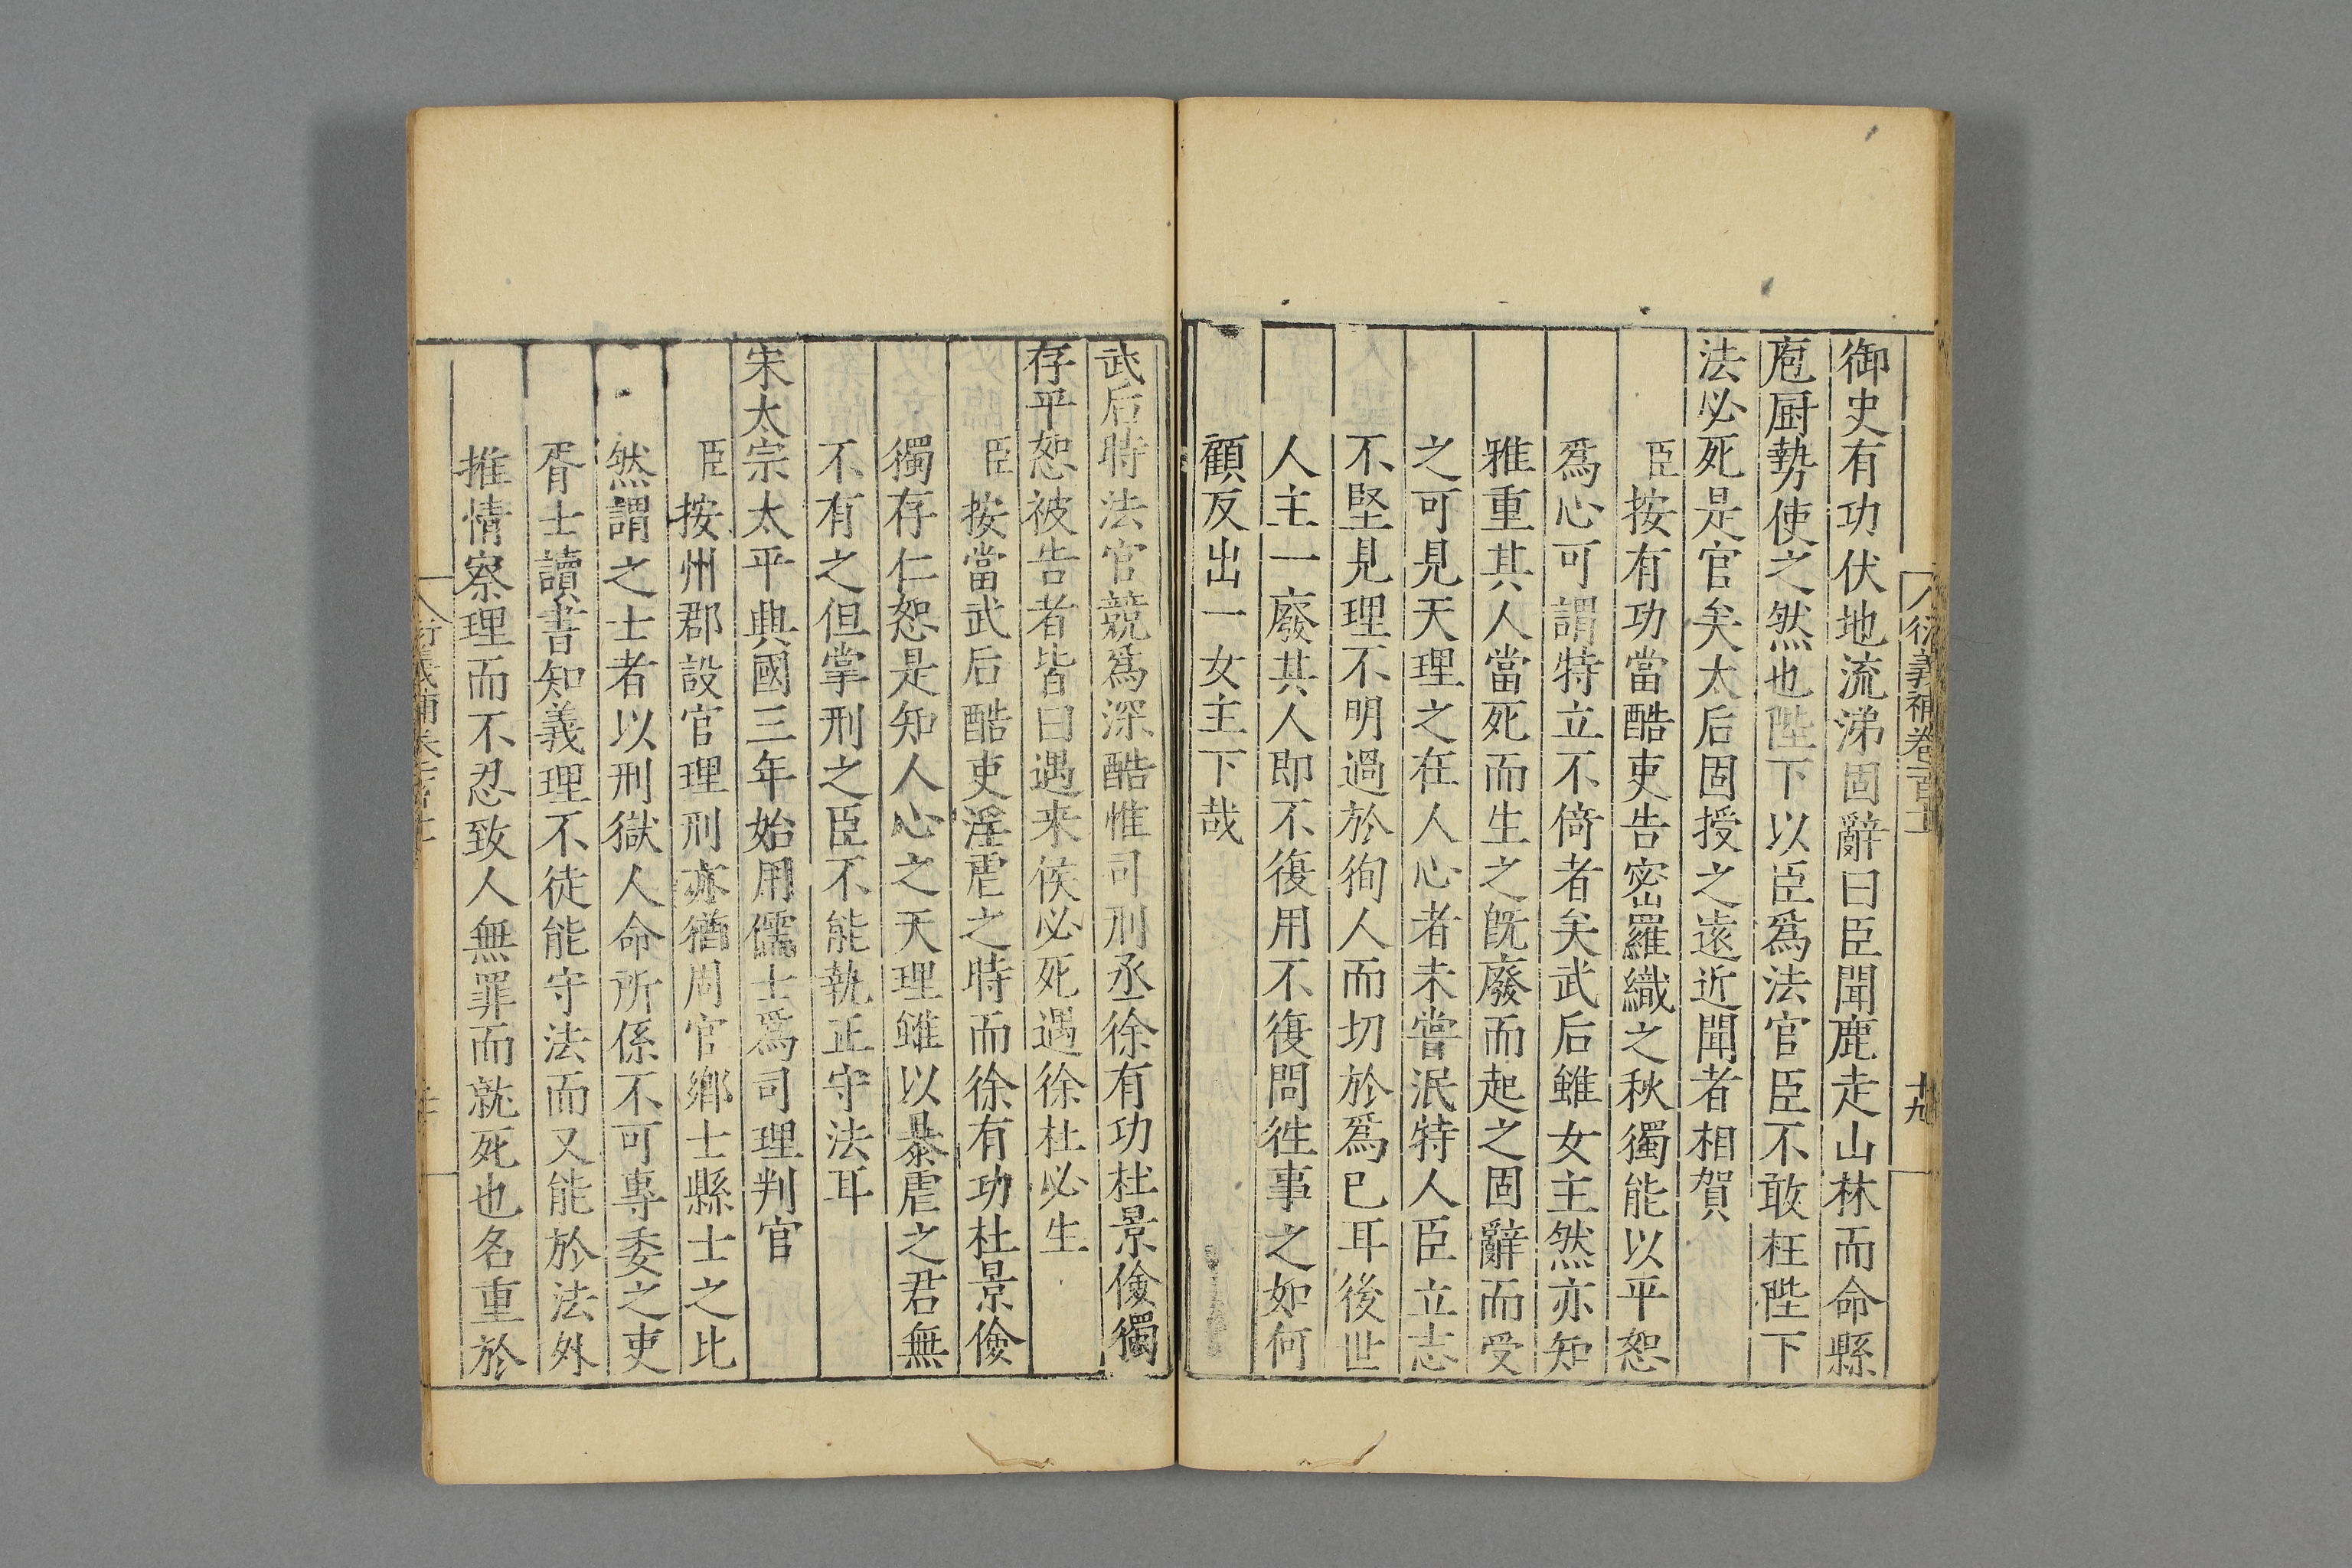 衍義補卷百十
十九
御史有功伏地流涕固辭曰臣聞鹿走山林而命縣
庖厨勢使之然也陛下以臣爲法官臣不敢枉陛下
法必死是官矣太后固授之遠近聞者相賀
臣按有功當酷吏告密羅織之秋獨能以平恕
爲心可謂特立不倚者矣武后雖女主然亦知
雅重其人當死而生之旣廢而起之固辭而受
之可見天理之在人心者未嘗泯特人臣立志
不堅見理不明過於徇人而切於爲已耳後世
人主一廢其人即不復用不復問徃事之如何
顧反出一女主下哉
武后時法官競爲深酷惟司刑丞徐有功杜景儉獨
存平恕被告者皆曰遇来侯必死遇徐杜必生
臣按當武后酷吏淫虐之時而徐有功杜景儉
獨存仁恕是知人心之天理雖以暴虐之君無
不有之但掌刑之臣不能執正守法耳
宋太宗太平興國三年始用儒士爲司理判官
臣按州郡設官理刑亦猶周官鄉士縣士之比
然謂之士者以刑獄人命所係不可專委之吏
胥士讀書知義理不徒能守法而又能於法外
推情察理而不忍致人無罪而就死也名重於